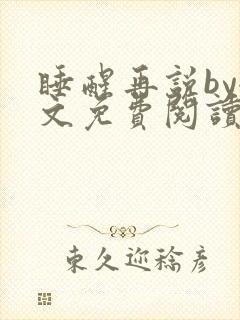 睡醒再説by
文免費閱讀
東久迩稔彦